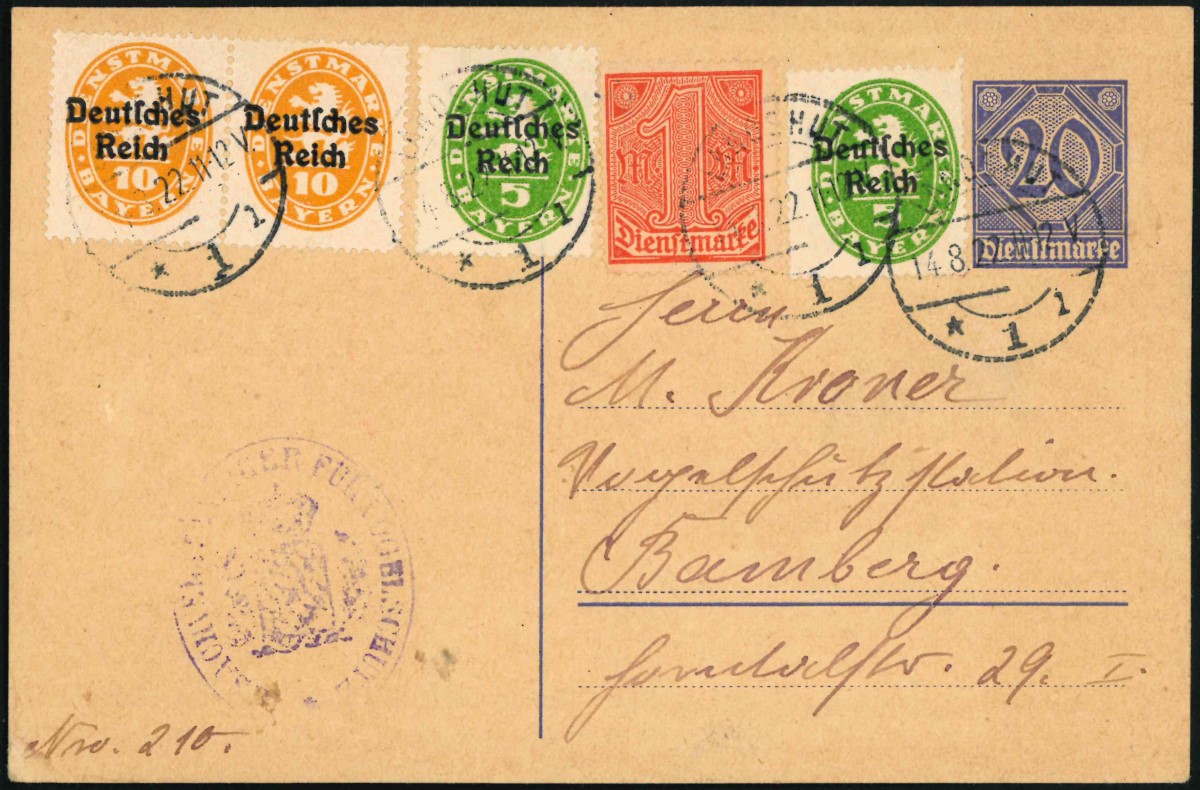 DIENSTMARKE BAYERN
Deutsches
Reich
10
DIENSTMARKE BAYERN
Deutsches
Reich
10
DIENSTMARKE BAYERN
Deutsches
Reich
5
1
M M
Dienstmarke
DIENSTMARKE BAYERN
Deutsches
Reich
5
20
Dienstmarke
HUT
22.11-12 V
* 1 1
HUT
* 1 1
HUT
22.11
* 1 1
14.8.22.11-12 V
* 1 1
Herrn
M. Kroner
Vogelschutzstation.
Bamberg.
29. I.
FÜR VOGELSCHUTZ
*
Nro. 210.